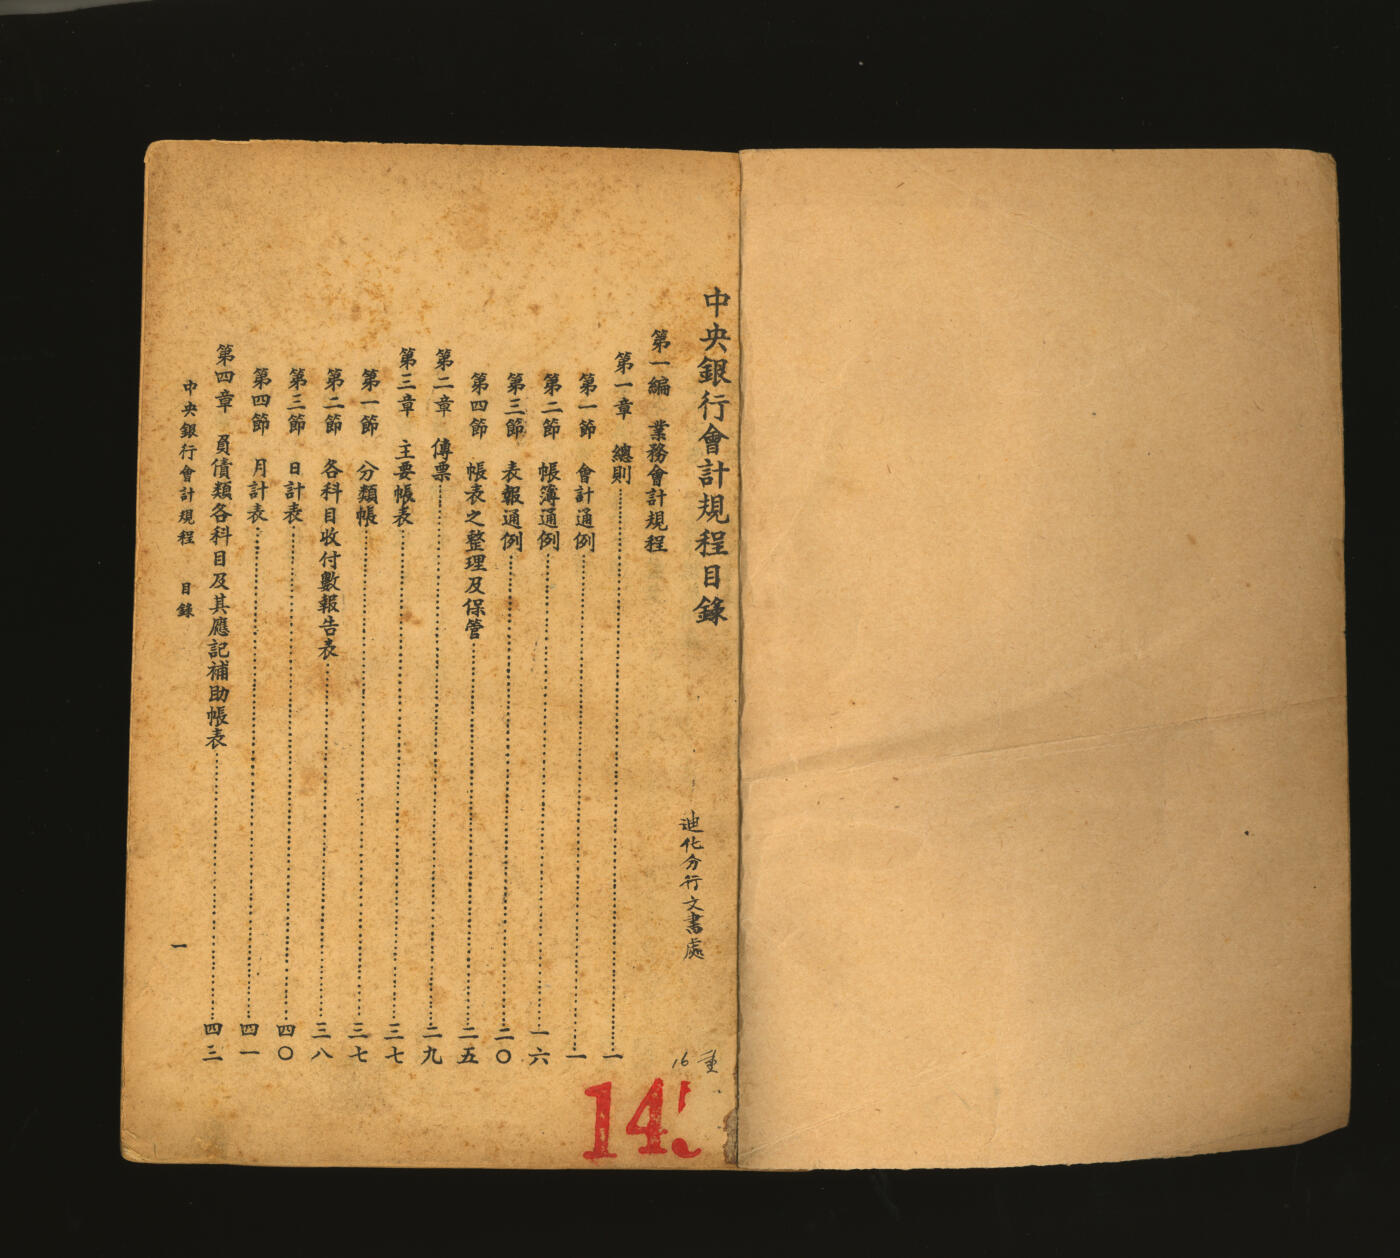 中央銀行會計規程目錄
迪化分行文書處
第一編　業務會計規程
第一章　總則……一
第一節　會計通例……一
第二節　帳簿通例……一六
第三節　表報通例……二〇
第四節　帳表之整理及保管……二五
第二章　傳票……二九
第三章　主要帳表……三七
第一節　分類帳……三七
第二節　各科目收付數報告表……三八
第三節　日計表……四〇
第四節　月計表……四一
第四章　負債類各科目及其應記補助帳表……四三
中央銀行會計規程　目錄
一
16